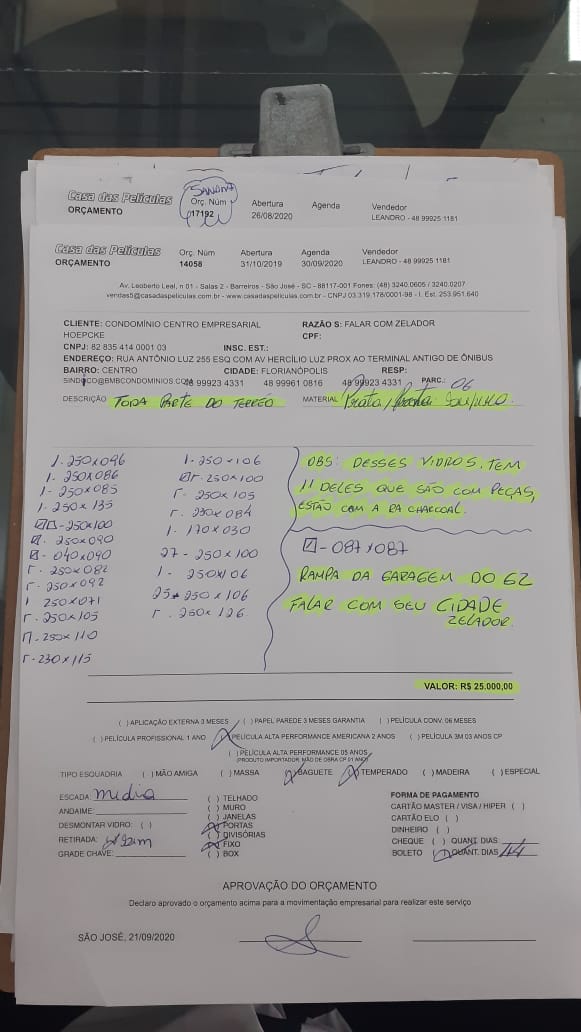 Casa das Películas
SANDRA
Orç. Núm
Abertura
Agenda
Vendedor
ORÇAMENTO
17192
26/08/2020
LEANDRO - 48 99925 1181
Casa das Películas
Orç. Núm
Abertura
Agenda
Vendedor
ORÇAMENTO
14058
31/10/2019
30/09/2020
LEANDRO - 48 99925 1181
Av. Leoberto Leal, n 01 - Salas 2 - Barreiros - São José - SC - 88117-001 Fones: (48) 3240.0605 / 3240.0207
vendas5@casadaspeliculas.com.br - www.casadaspeliculas.com.br - CNPJ 03.319.178/0001-98 - I. Est. 253.951.640
CLIENTE: CONDOMÍNIO CENTRO EMPRESARIAL HOEPCKE
RAZÃO S: FALAR COM ZELADOR
CPF:
CNPJ: 82 835 414 0001 03
INSC. EST.:
ENDEREÇO: RUA ANTÔNIO LUZ 255 ESQ COM AV HERCÍLIO LUZ PROX AO TERMINAL ANTIGO DE ÔNIBUS
BAIRRO: CENTRO
CIDADE: FLORIANÓPOLIS
RESP:
SINDICO@BMBCONDOMINIOS.COM
48 99923 4331
48 99961 0816
48 99923 4331
PARC.: 06
DESCRIÇÃO TODA PARTE DO TERREO
MATERIAL Prata/
1- 250x096
1- 250x086
1- 250x085
1- 250x135
-250x100
- 250x090
- 040x090
- 250x082
- 250x092
1 250x071
- 250x105
- 250x110
- 230x115
1- 250x106
- 250x100
- 250x105
- 250x084
1- 170x030
27 - 250x100
1- 250x106
25 250x106
- 250x126
OBS: DESSES VIDROS, TEM
11 DELES QUE SÃO COM PEÇAS,
ESTÃO COM A RA CHARCOAL.
- 087x087
RAMPA DA GARAGEM DO G2
FALAR COM SEU CIDADE
ZELADOR.
VALOR: R$ 25.000,00
( ) APLICAÇÃO EXTERNA 3 MESES ( ) PAPEL PAREDE 3 MESES GARANTIA ( ) PELÍCULA CONV. 06 MESES
( ) PELÍCULA PROFISSIONAL 1 ANO (X) PELÍCULA ALTA PERFORMANCE AMERICANA 2 ANOS ( ) PELÍCULA 3M 03 ANOS CP
( ) PELÍCULA ALTA PERFORMANCE 05 ANOS
(PRODUTO IMPORTADOR, MÃO DE OBRA CP 01 ANO)
TIPO ESQUADRIA ( ) MÃO AMIGA ( ) MASSA (X) BAGUETE (X) TEMPERADO ( ) MADEIRA ( ) ESPECIAL
ESCADA: media
ANDAIME:
DESMONTAR VIDRO: ( )
RETIRADA: Sim
GRADE CHAVE:
( ) TELHADO
( ) MURO
( ) JANELAS
(X) PORTAS
( ) DIVISÓRIAS
(X) FIXO
( ) BOX
FORMA DE PAGAMENTO
CARTÃO MASTER / VISA / HIPER ( )
CARTÃO ELO ( )
DINHEIRO ( )
CHEQUE ( ) QUANT DIAS:
BOLETO (X) QUANT. DIAS 14
APROVAÇÃO DO ORÇAMENTO
Declaro aprovado o orçamento acima para a movimentação empresarial para realizar este serviço
SÃO JOSÉ, 21/09/2020